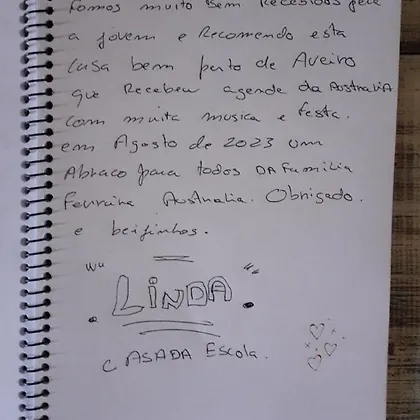 Fomos muito bem Recebidos pela
a jovem e Recomendo esta
Casa bem perto de Aveiro
que Recebeu agende da Australia
com muita musica e festa.
em Agosto de 2023 um
Abraco para todos DA Familia
Ferreira Australia. Obrigado.
e beijinhos.
LINDA
CASADA Escola.